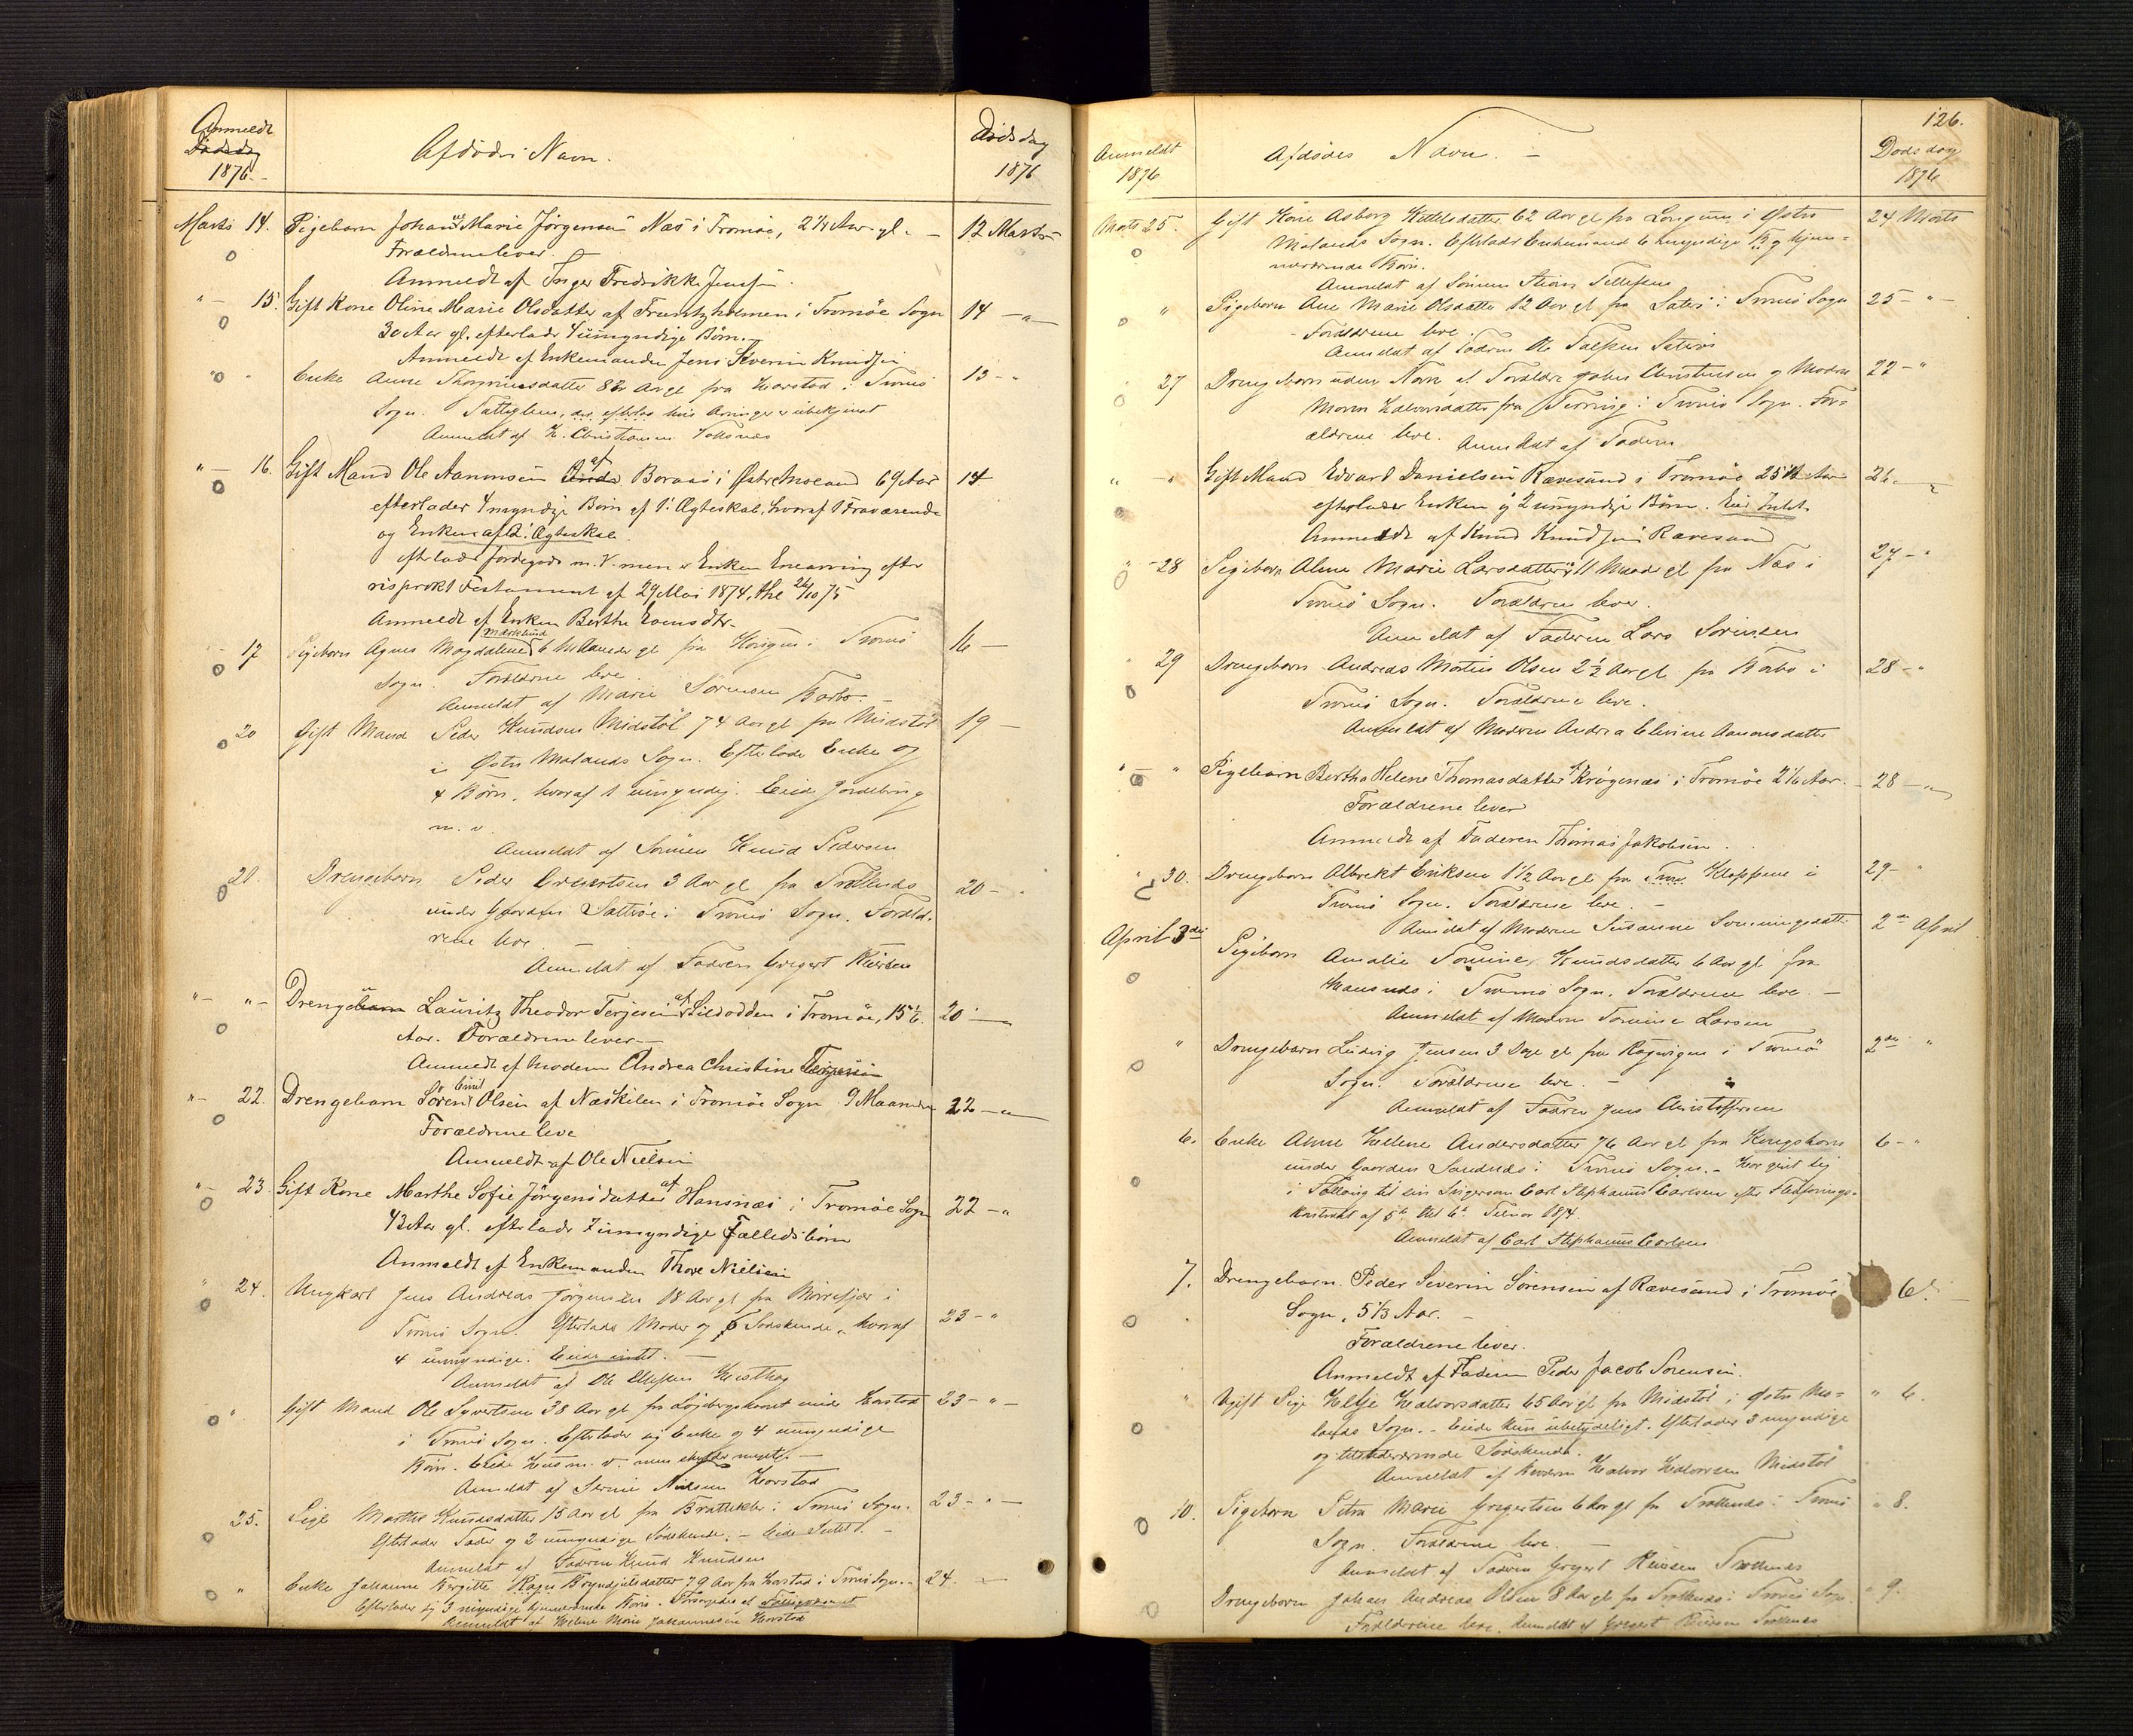 Anmeldt
Dødsdag
1876.
Afdødes Navn.
Dødsdag
1876
Marts 14. Pigebarn Johanne Marie Jørgensen Næs i Tromøe, 2 1/4 Aar gl. – 12 Marts
Forældrene lever.
Anmeldt af Inger Fredrikke Jensen
"– 15. Gift Kone Oline Marie Olsdatter af Frantzholmen i Tromøe Sogn 14 –"–
30 Aar gl. efterlader 4 umyndige Børn.–
Anmeldt af Enkemanden Jens Severin Knudsen
" Enke Anne Thorgrimsdatter 82 Aar gl fra Harstad i Tromø 13 – "
Sogn. Fattiglem, efterlod sine Arvinger er ubekjendt
Anmeldt af K. Christiansen
"– 16. Gift Mand Ole Aanonsen af Boraas i Østre Moland 69 Aar 14
efterlader 4 myndige Børn af 1' Ægteskab, hvoraf 1 Fraværende
og Enken af 2' Ægteskab.
efterlader Jordegods m.V. men er Enken Enearving efter
Testament af 29 Mai 1874, thl 26/10 75
Anmeldt af Enken Berthe Evensdtr
17 Pigebarn Agnes Magdalene Marklund 6 Maaneder gl fra i Tromø 16 –
Sogn. Forældrene leve.
Anmeldt af Marie Sørensen Barbo. –
20 Gift Mand Peder Knudsen Midstøl 74 Aar gl fra Midstøl 19 –
i Østre Molands Sogn. Efterlader Enke og
4 Børn, hvoraf 1 umyndig. Eied Jordebrug
m. v.
Anmeldt af Sønnen Knud Pedersen
21. Drengebarn Peder Gregertsen 3 Aar gl fra Trollnæs 20 –
under Gaarden i Tromø Sogn. Foræld-
rene leve. –
Anmeldt af Faderen Gregert
"– "– Drengebarn Lauritz Theodor Terjesen af Sildodden i Tromøe, 15 1/6 20 –"–
Aar. Forældrene lever –
Anmeldt af Moderen Andrea Christine Terjesen
"– 22. Drengebarn Søren Emil Olsen af Næskilen i Tromøe Sogn 9 Maaneder 22 –"–
Forældrene leve
Anmeldt af Ole Nielsen
"– 23. Gift Kone Marthe Sofie Jørgensdatter af Hansnæs i Tromøe Sogn 22 –"
43 Aar gl. efterlader 7 umyndige Fælledsbørn
Anmeldt af Enkemanden Thore Nielsen
" 24. Ungkarl Jens Andreas Jørgensen 18 Aar gl fra Mørefjær i
Tromø Sogn. Efterlader Moder og 6 Sødskende, hvoraf 23 – "
4 umyndige. Eiede intet. –
Anmeldt af Ole Ellefsen
" Gift Mand Ole Syvertsen 38 Aar gl fra under Harstad 23 – " –
i Tromø Sogn. Efterlader sig Enke og 4 umyndige
Børn. Eiede Huus m. v. men skylder meget. –
Anmeldt af Nielsen Harstad
25. Pige Marthe Knudsdatter 15 Aar gl fra Brattekle i Tromø Sogn. 23 – " –
Efterlader Fader og 2 umyndige Sødskende. – Eiede Intet. –
Anmeldt af Faderen Knud Knudsen
" Enke Johanne Birgitte Bryndjulsdatter 79 Aar fra Harstad i Tromø Sogn. 24.
Efterlader sig 3 myndige hjemværende Børn. Forsørgedes af Fattigvæsenet
Anmeldt af Helene Marie Johannesen Harstad
126.
Anmeldt
1876
Afdødes Navn. –
Dødsdag
1876
Marts 25. Gift Kone Asborg Kittelsdatter 62 Aar gl fra Longum i Østre 24 Marts
Molands Sogn. Efterlader Enkemand 6 myndige og hjem-
meværende Børn.
Anmeldt af Sønnen Tellefsen
" Pigebarn Ane Marie Olsdatter 12 Aar gl fra i Tromø Sogn 25 – " –
– Forældrene leve.
Anmeldt af Faderen Ole
27 Drengebarn uden Navn af Forældre Johan Christensen og Moderen 22 – "
Maren Halvorsdatter fra i Tromø Sogn. For-
ældrene leve. Anmeldt af Faderen
" " Gift Mand Edvard Danielsen Rævesand i Tromøe 25 Aar 26
efterlader Enken og 2 umyndige Børn. Eier Intet.
Anmeldt af Knud Knudsen Rævesand
" 28 Pigebarn Aline Marie Larsdatter 11 Maaneder gl fra Næs i 27 – "
Tromø Sogn. Forældrene leve.
Anmeldt af Faderen Lars Sørensen
29 Drengebarn Andreas Martin Olsen 2 1/2 Aar gl fra Barbo i 28 – "
Tromø Sogn. Forældrene leve.
Anmeldt af Moderen Andrea Elevine Aanonsdatter
" – " Pigebarn Berthe Helene Thomasdatter af Krøgenæs i Tromøe 2 1/6 Aar. – 28 – "
Forældrene lever
Anmeldt af Faderen Thomas Jakobsen.
" 30. Drengebarn Albrekt Eriksen 1 1/2 Aar gl fra Kloppene i 29 – "
Tromø Sogn. Forældrene leve. –
Anmeldt af Moderen Susanne
April 3die Pigebarn Amalie Tomine Knudsdatter 6 Aar gl fra 2den April
Hansnæs i Tromø Sogn. Forældrene leve. –
Anmeldt af Moderen Tomine Larsen
" Drengebarn Ludvig Jensen 3 Dage gl fra i Tromø 2den "
Sogn. Forældrene leve. –
Anmeldt af Faderen Jens Christoffersen
6. Enke Anne Helene Andersdatter 76 Aar gl fra Kongshavn 6 – "
under Gaarden Sandnæs i Tromø Sogn. – Har givet sig
i Følling til sin Svigersøn Carl Stephanus Carlsen efter
Kontrakt af 5te thl 6te Februar 1874.
Anmeldt af Carl Stephanus Carlsen
7. Drengebarn. Peder Severin Sørensen af Rævesand i Tromøe 6'. –
Sogn, 5 1/3 Aar. –
Forældrene lever.
Anmeldt af Faderen Peder Jacob Sørensen.
" Ugift Pige Helje Halvorsdatter 65 Aar gl fra Midstøl i Østre Mo- " 6.
lands Sogn. – Eiede kun ubetydeligt. Efterlader 3 myndige
og tilstedeværende Sødskende.
Anmeldt af Broderen Halvor Halvorsen Midstøl
10. Pigebarn Petra Marie Gregertsen 6 Aar gl fra Trollnæs i Tromø " 8.
Sogn. Forældrene leve. –
Anmeldt af Faderen Gregert Trollnæs
Drengebarn Johan Andreas Olsen 8 Aar gl fra Trollnæs i Tromø Sogn " 9.
Forældrene leve. Anmeldt af Gregert Trollnæs